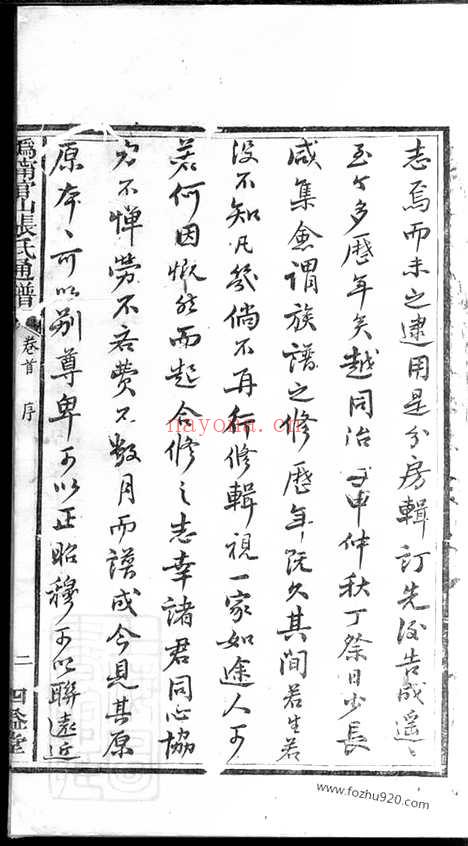 志焉而未之逮用是分房輯訂先後告成遥〻
至今多歷年矣越同治壬申仲秋丁祭日少長
咸集僉謂族譜之修歷年既久其間若生若
没不知凡幾倘不再行修輯視一家如途人可
若何因慨然而起合修之志幸諸君同心協
力不憚勞不吝費不數月而譜成今見其原
原本〻可以别尊卑可以正昭穆可以聯遠近
張氏通譜
卷首 序
二
四益堂
nayona.cn
www.fozhu920.com